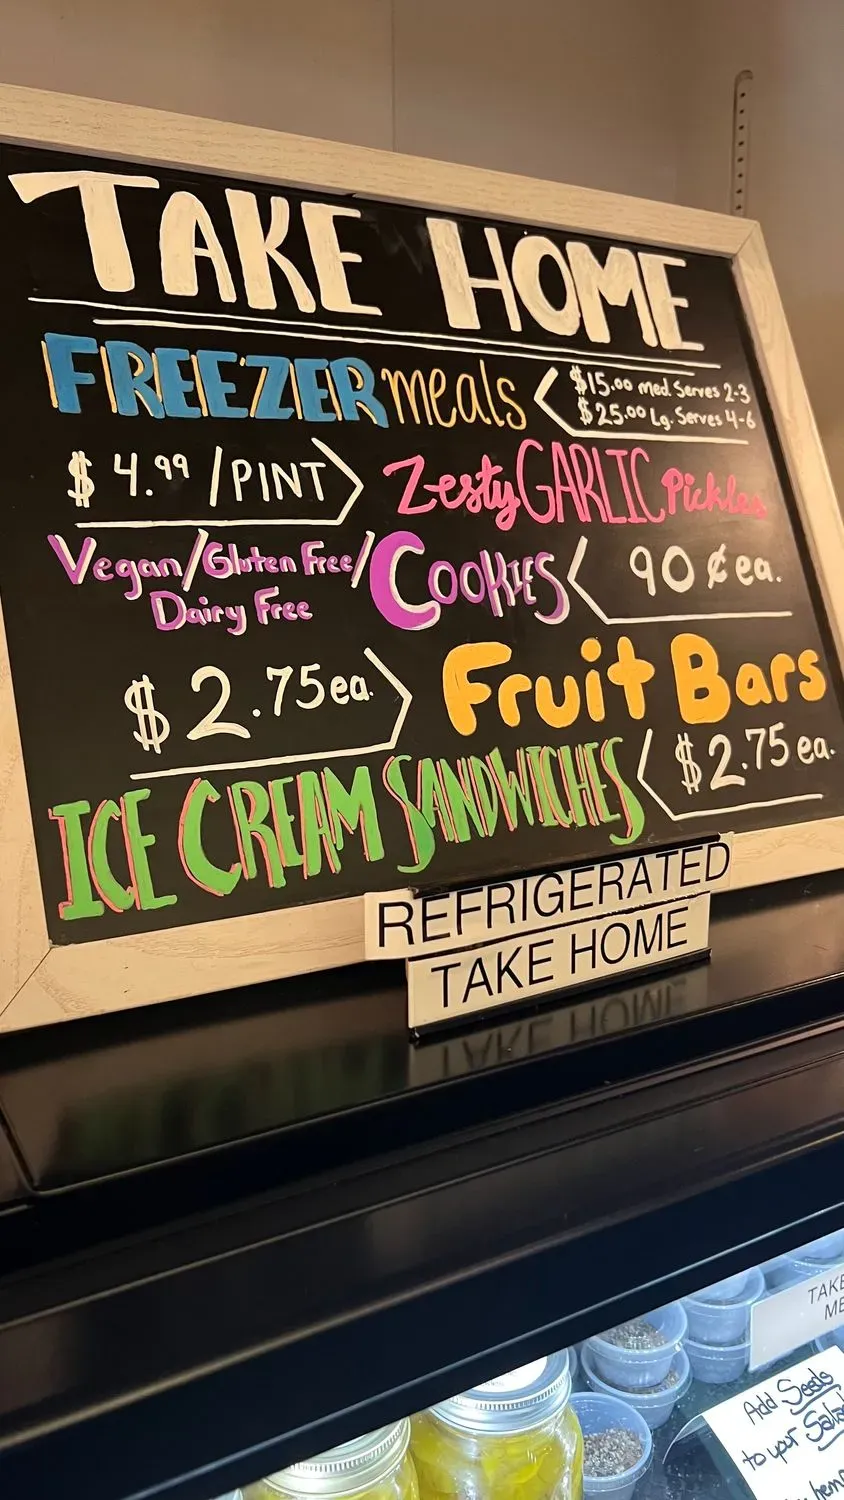 TAKE HOME
FREEZER meals
$15.00 med. Serves 2-3
$25.00 Lg. Serves 4-6
$4.99/PINT
Zesty GARLIC Pickles
Vegan/Gluten Free/
Dairy Free
COOKIES
90¢ ea.
$2.75 ea.
Fruit Bars
ICE CREAM SANDWICHES
$2.75 ea.
REFRIGERATED
TAKE HOME
Add Seeds
to your